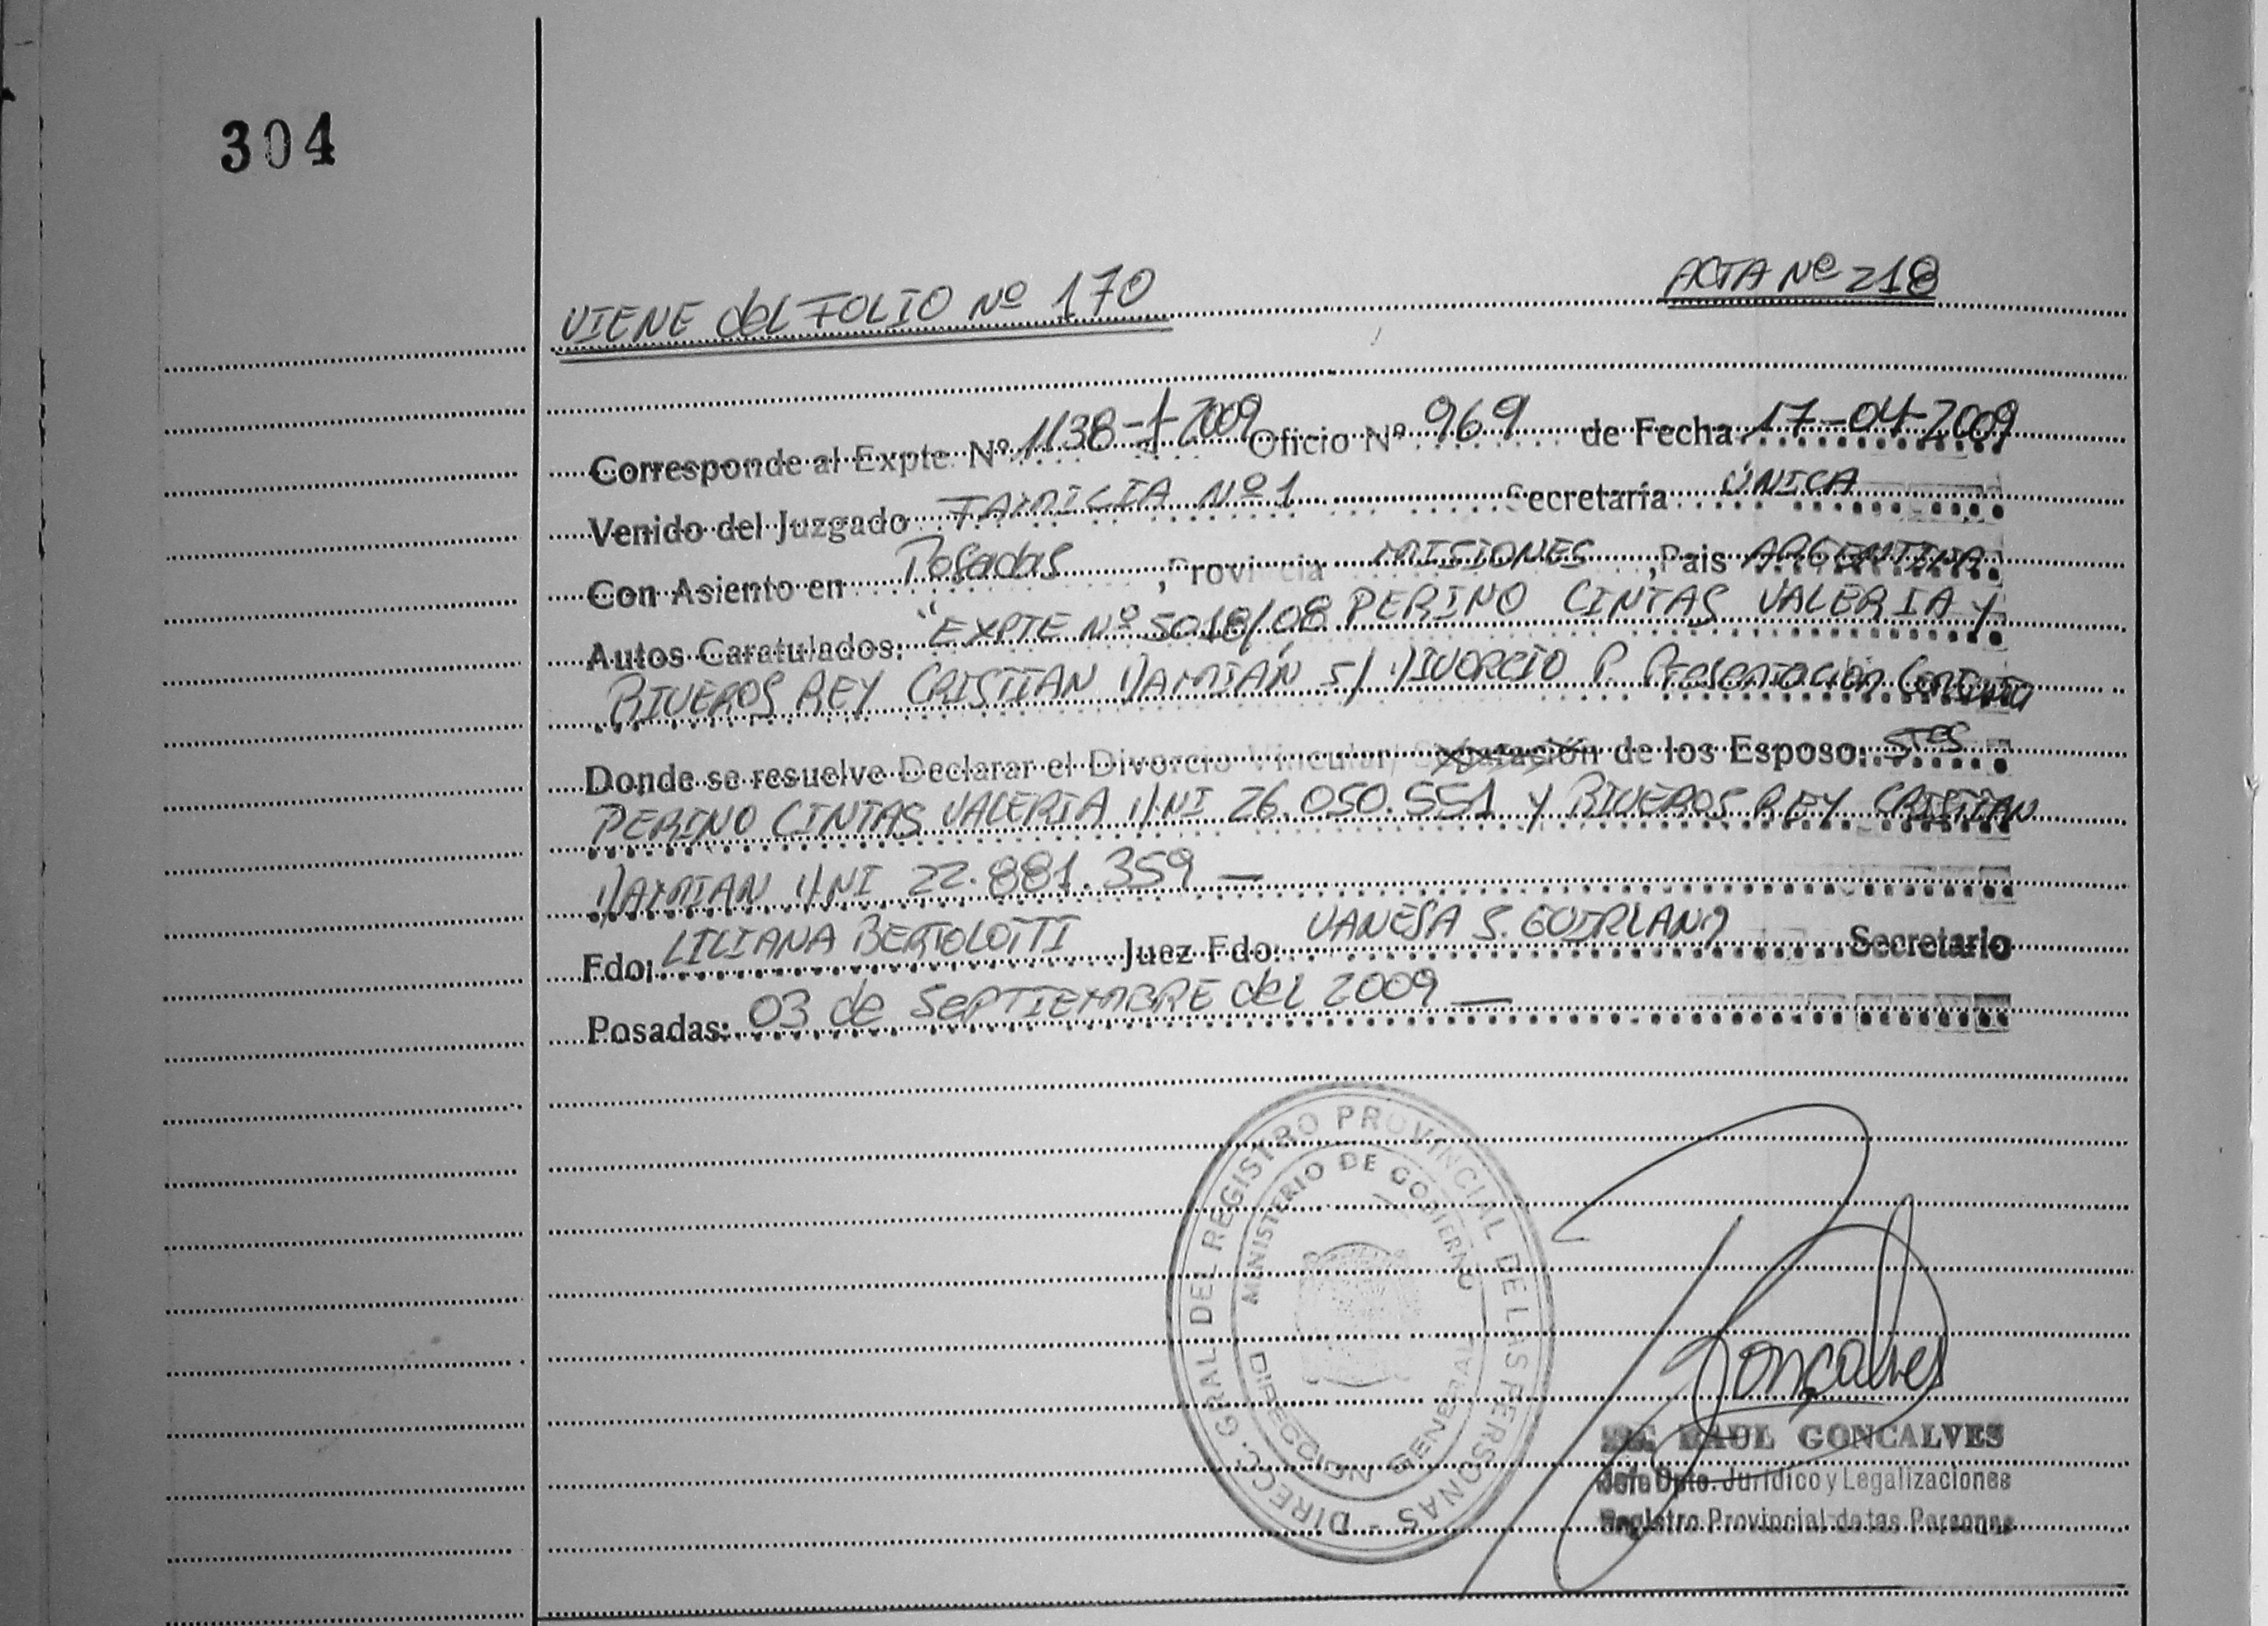 304
VIENE del FOLIO Nº 170
ACTA Nº 218
Corresponde al Expte Nº 1138-1-2009 Oficio Nº 969 de Fecha 17-04-2009
Venido del Juzgado FAMILIA Nº 1 Secretaría ÚNICA
Con Asiento en Posadas, Provincia MISIONES, Pais ARGENTINA
Autos Caratulados: "EXPTE Nº 5018/08 PERINO CINTAS VALERIA Y
RIVEROS REY CRISTIAN DAMIÁN S/ DIVORCIO P. Presentación Conjunta
Donde se resuelve Declarar el Divorcio Vincular/ Separación de los Esposo: Sres
PERINO CINTAS VALERIA DNI 26.050.551 Y RIVEROS REY CRISTIAN
DAMIAN DNI 22.881.359 —
Fdo: LILIANA BERTOLOTTI Juez Fdo: VANESA S. Secretario
Posadas: 03 de SEPTIEMBRE del 2009 —
DIRECC. GRAL DEL REGISTRO PROVINCIAL DE LAS PERSONAS -
MINISTERIO DE GOBIERNO
DIRECCION GENERAL
Goncalves
RAUL GONCALVES
Jefe Dpto. Jurídico y Legalizaciones
Registro Provincial de las Personas